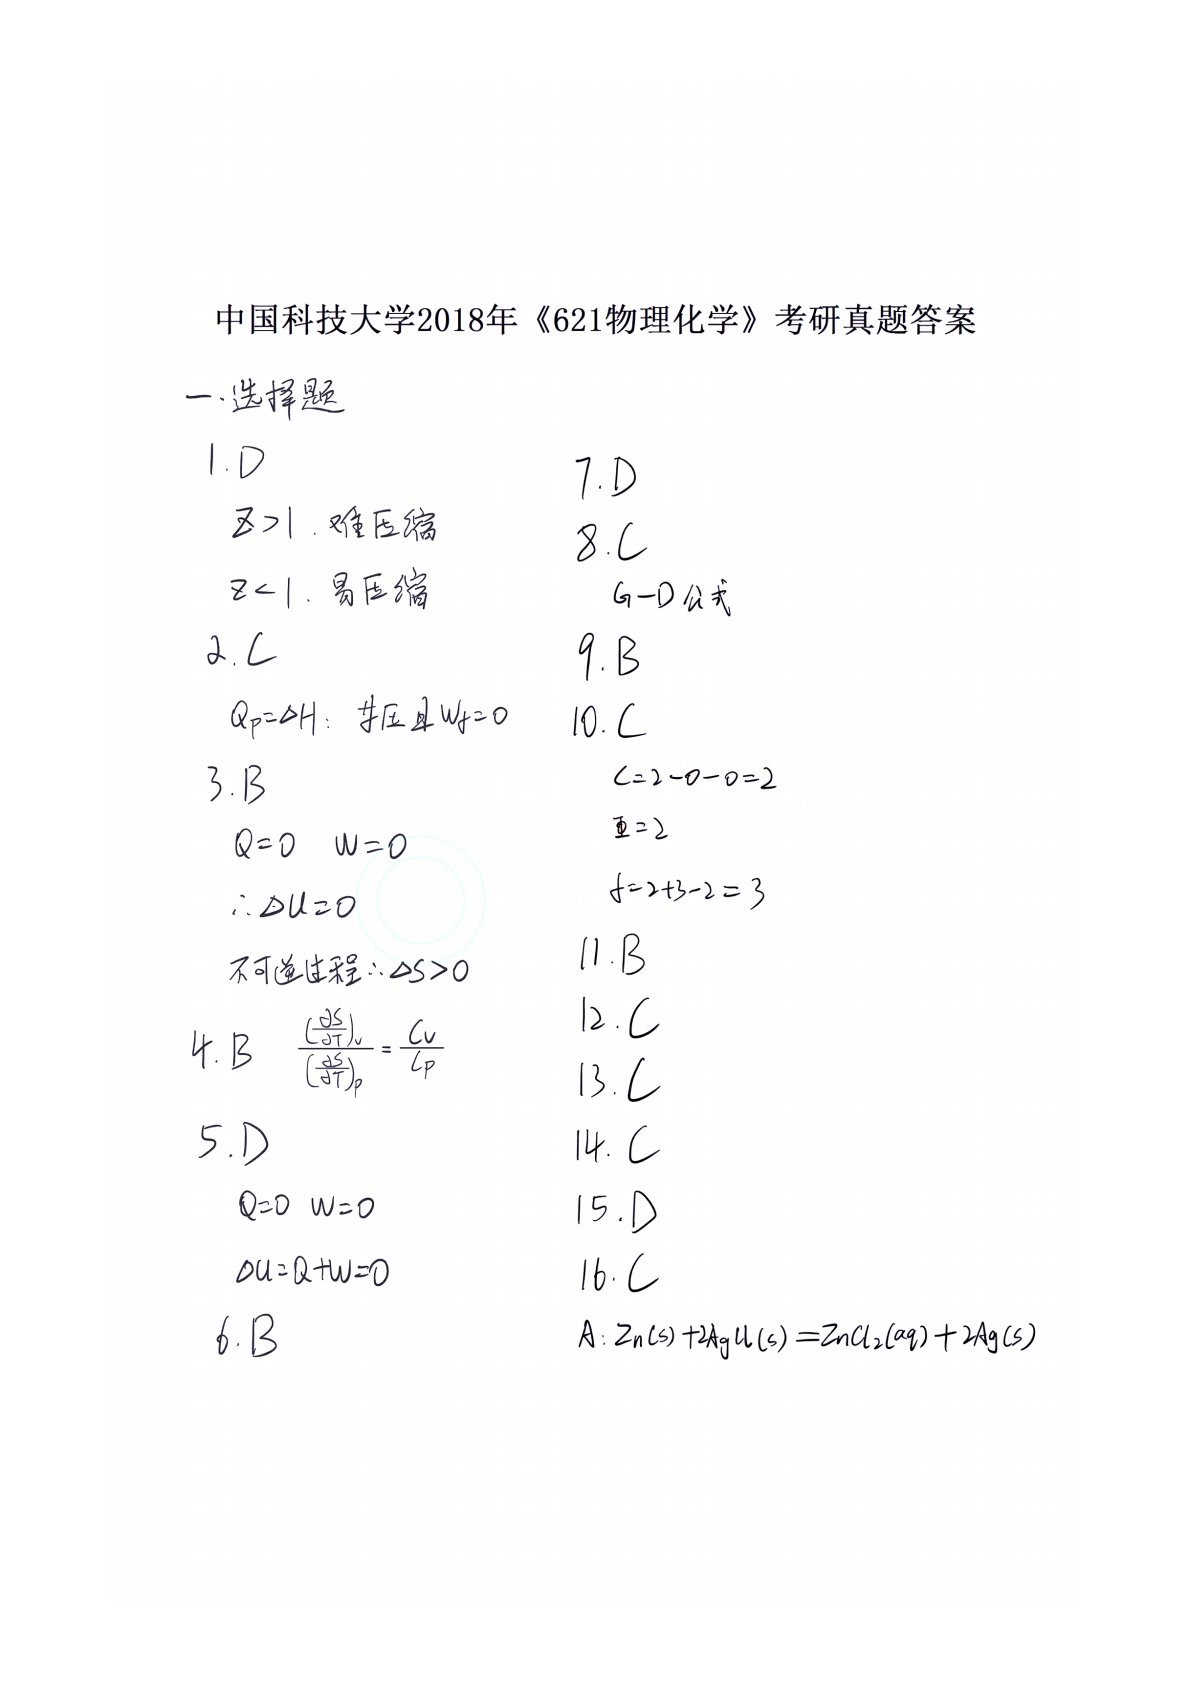 中国科技大学2018年《621物理化学》考研真题答案
一.选择题
1.D
Z>1.难压缩
Z<1.易压缩
2.C
Qp=ΔH:等压且Wf=0
3.B
Q=0 W=0
∴ΔU=0
不可逆过程∴ΔS>0
4.B (∂S/∂T)v / (∂S/∂T)p = Cv/Cp
5.D
Q=0 W=0
ΔU=Q+W=0
6.B
7.D
8.C
G-D公式
9.B
10.C
C=2-0-0=2
Φ=2
f=2+3-2=3
11.B
12.C
13.C
14.C
15.D
16.C
A:Zn(s)+2AgCl(s)=ZnCl₂(aq)+2Ag(s)